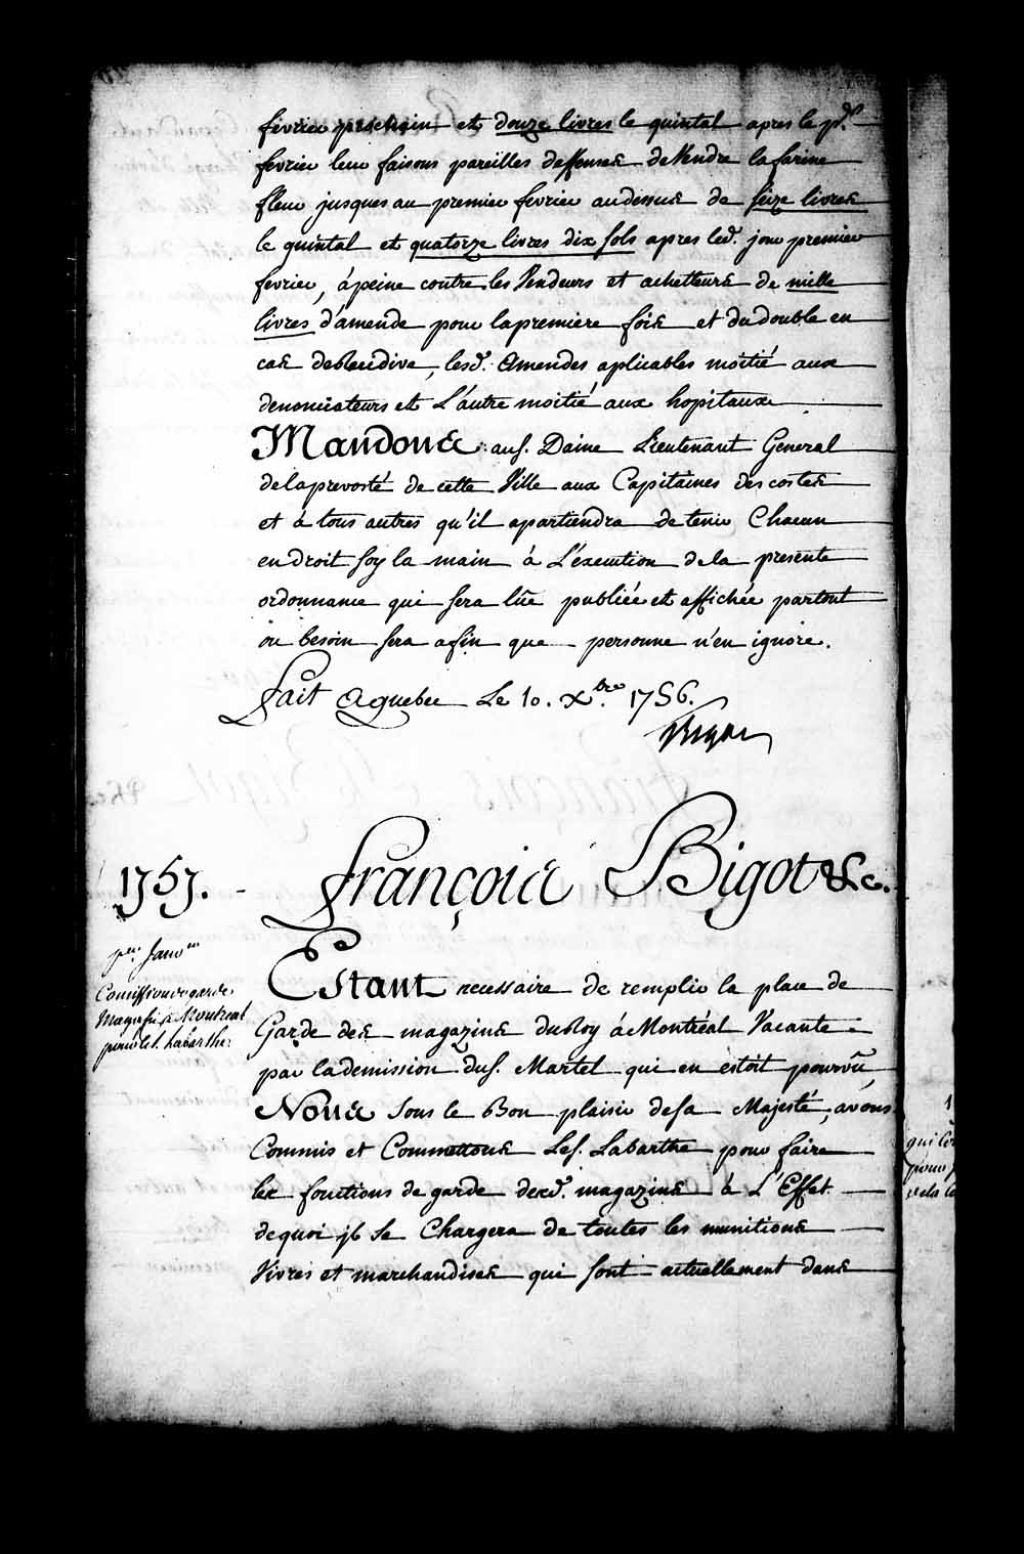 fevrier prochain et douze livres le quintal apres le pr.
fevrier leur faisons pareilles deffenses de Vendre la farine
fleur jusques au premier fevrier audessus de seize livres
le quintal et quatorze livres dix sols apres led. jour premier
fevrier, á peine contre les Vendeurs et achetteurs de mille
livres d'amende pour la premiere fois et du double en
cas de Recidive, lesd. Amendes aplicables moitié aux
denonciateurs et L'autre moitié aux hopitaux
Mandons au s. Daine Lieutenant General
de la prevosté de cette Ville aux Capitaines des costes
et á tous autres qu'il apartiendra de tenir Chacun
en droit soy la main á L'éxecution de la presente
ordonnance qui sera lüe publiée et affichée partout
ou besoin sera afin que personne n'en ignore.
Fait A quebec Le 10. Xbre. 1756.
Bigot
1757. François Bigot &c.
per. Janver
Comission de garde
Magasin á Montreal
pour le s. Labarthe
Estant necessaire de remplir la place de
Garde des magazins du Roy á Montréal Vacante
par la demission du s. Martel qui en étoit pourvû,
Nous sous le Bon plaisir de sa Majesté, avons
Commis et Commettons Le s. Labarthe pour faire
les fonctions de garde desd. magazins á L'Effet
de quoi jl se Chargera de toutes les munitions
Vivres et marchandises qui sont actuellement dans